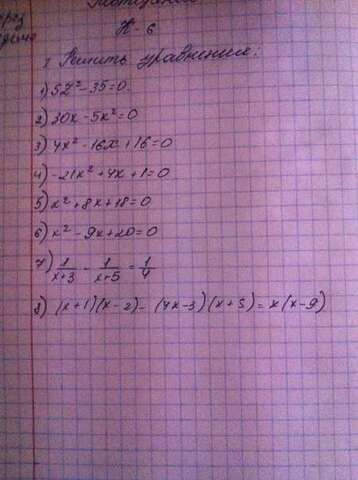 К-6
I Решить уравнения:
1) 5z²-35=0.
2) 30x-5x²=0
3) 4x²-16x+16=0
4) -21x²+4x+1=0
5) x²+8x+18=0
6) x²-9x+20=0
7) 1/(x+3) - 1/(x+5) = 1/4
8) (x+1)(x-2)-(4x-3)(x+5)=x(x-9)